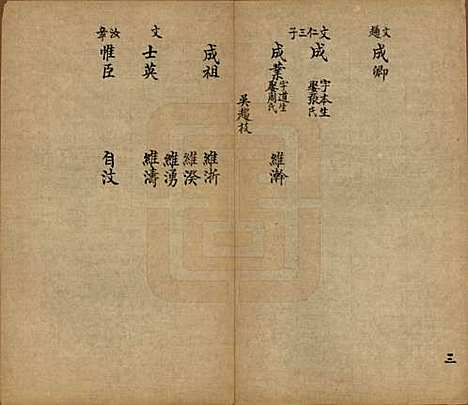 文趙
成卿
文仁三子
成 字本生
娶張氏
成業 字道生
娶周氏
維瀚
吳趙校
成祖
維浙
維湀
維湧
文
士英
維濤
汝章
惟臣
自汶
三